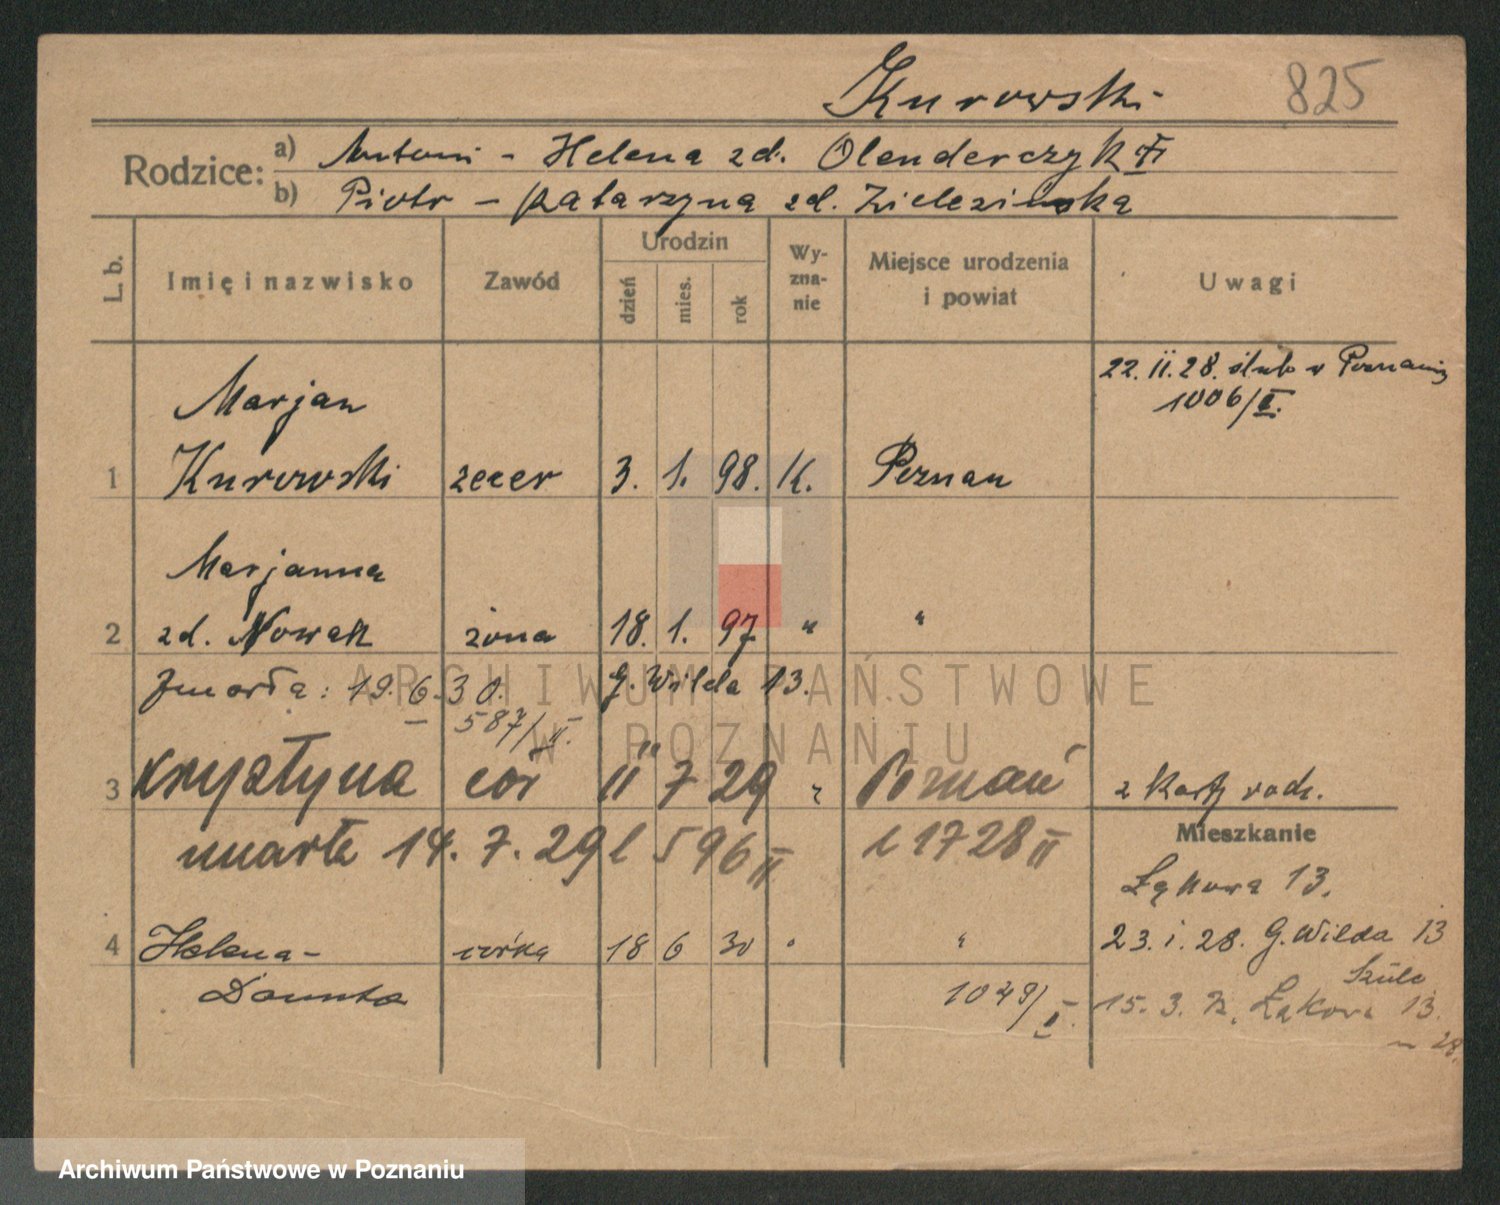 Kurowski 825
Rodzice: a) Antoni - Helena zd. Olenderczyk
b) Piotr - Katarzyna zd. Zielezińska
L. b. Imię i nazwisko Zawód Urodzin dzień mies. rok Wy-zna-nie Miejsce urodzenia i powiat Uwagi
22. II. 28. ślub w Poznaniu
1006/II.
Marjan
1 Kurowski zecer 3. 1. 98. K. Poznan
Marjanna
2 zd. Nowak żona 18. 1. 97 " "
Zmarła: 19. 6. 30. G. Wilda 13.
587/II.
3 Krystyna cór 11 7 29 " Poznań z Karty rodz.
umarła 14. 7. 29 l 596 II l 1728 II
Mieszkanie
Łąkowa 13.
4 Helena- córka 18 6 30 " " 23. I. 28. G. Wilda 13
Danuta 1049/I.
Szulc
15. 3. Łąkowa 13.
m 28.
ARCHIWUM PAŃSTWOWE
W POZNANIU
Archiwum Państwowe w Poznaniu